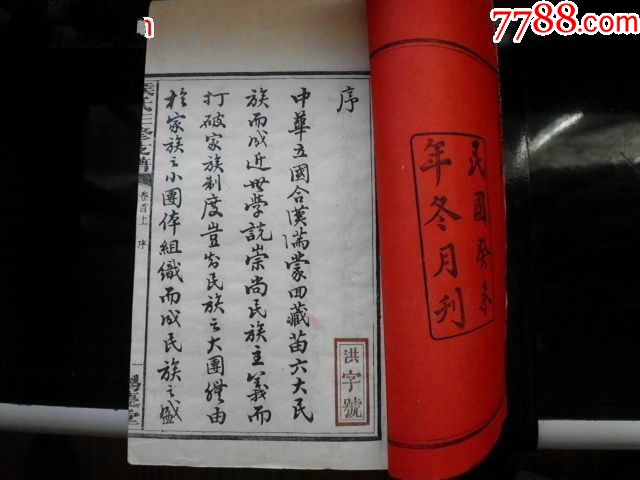 7788.com
民國癸未
年冬月刋
序
中華立國合漢滿蒙回藏苗六大民
族而成近世學說崇尚民族主義而
打破家族制度豈知民族之大團體由
於家族之小團体組織而成民族之盛
洪字號
氏三修支譜
卷首上 序
一